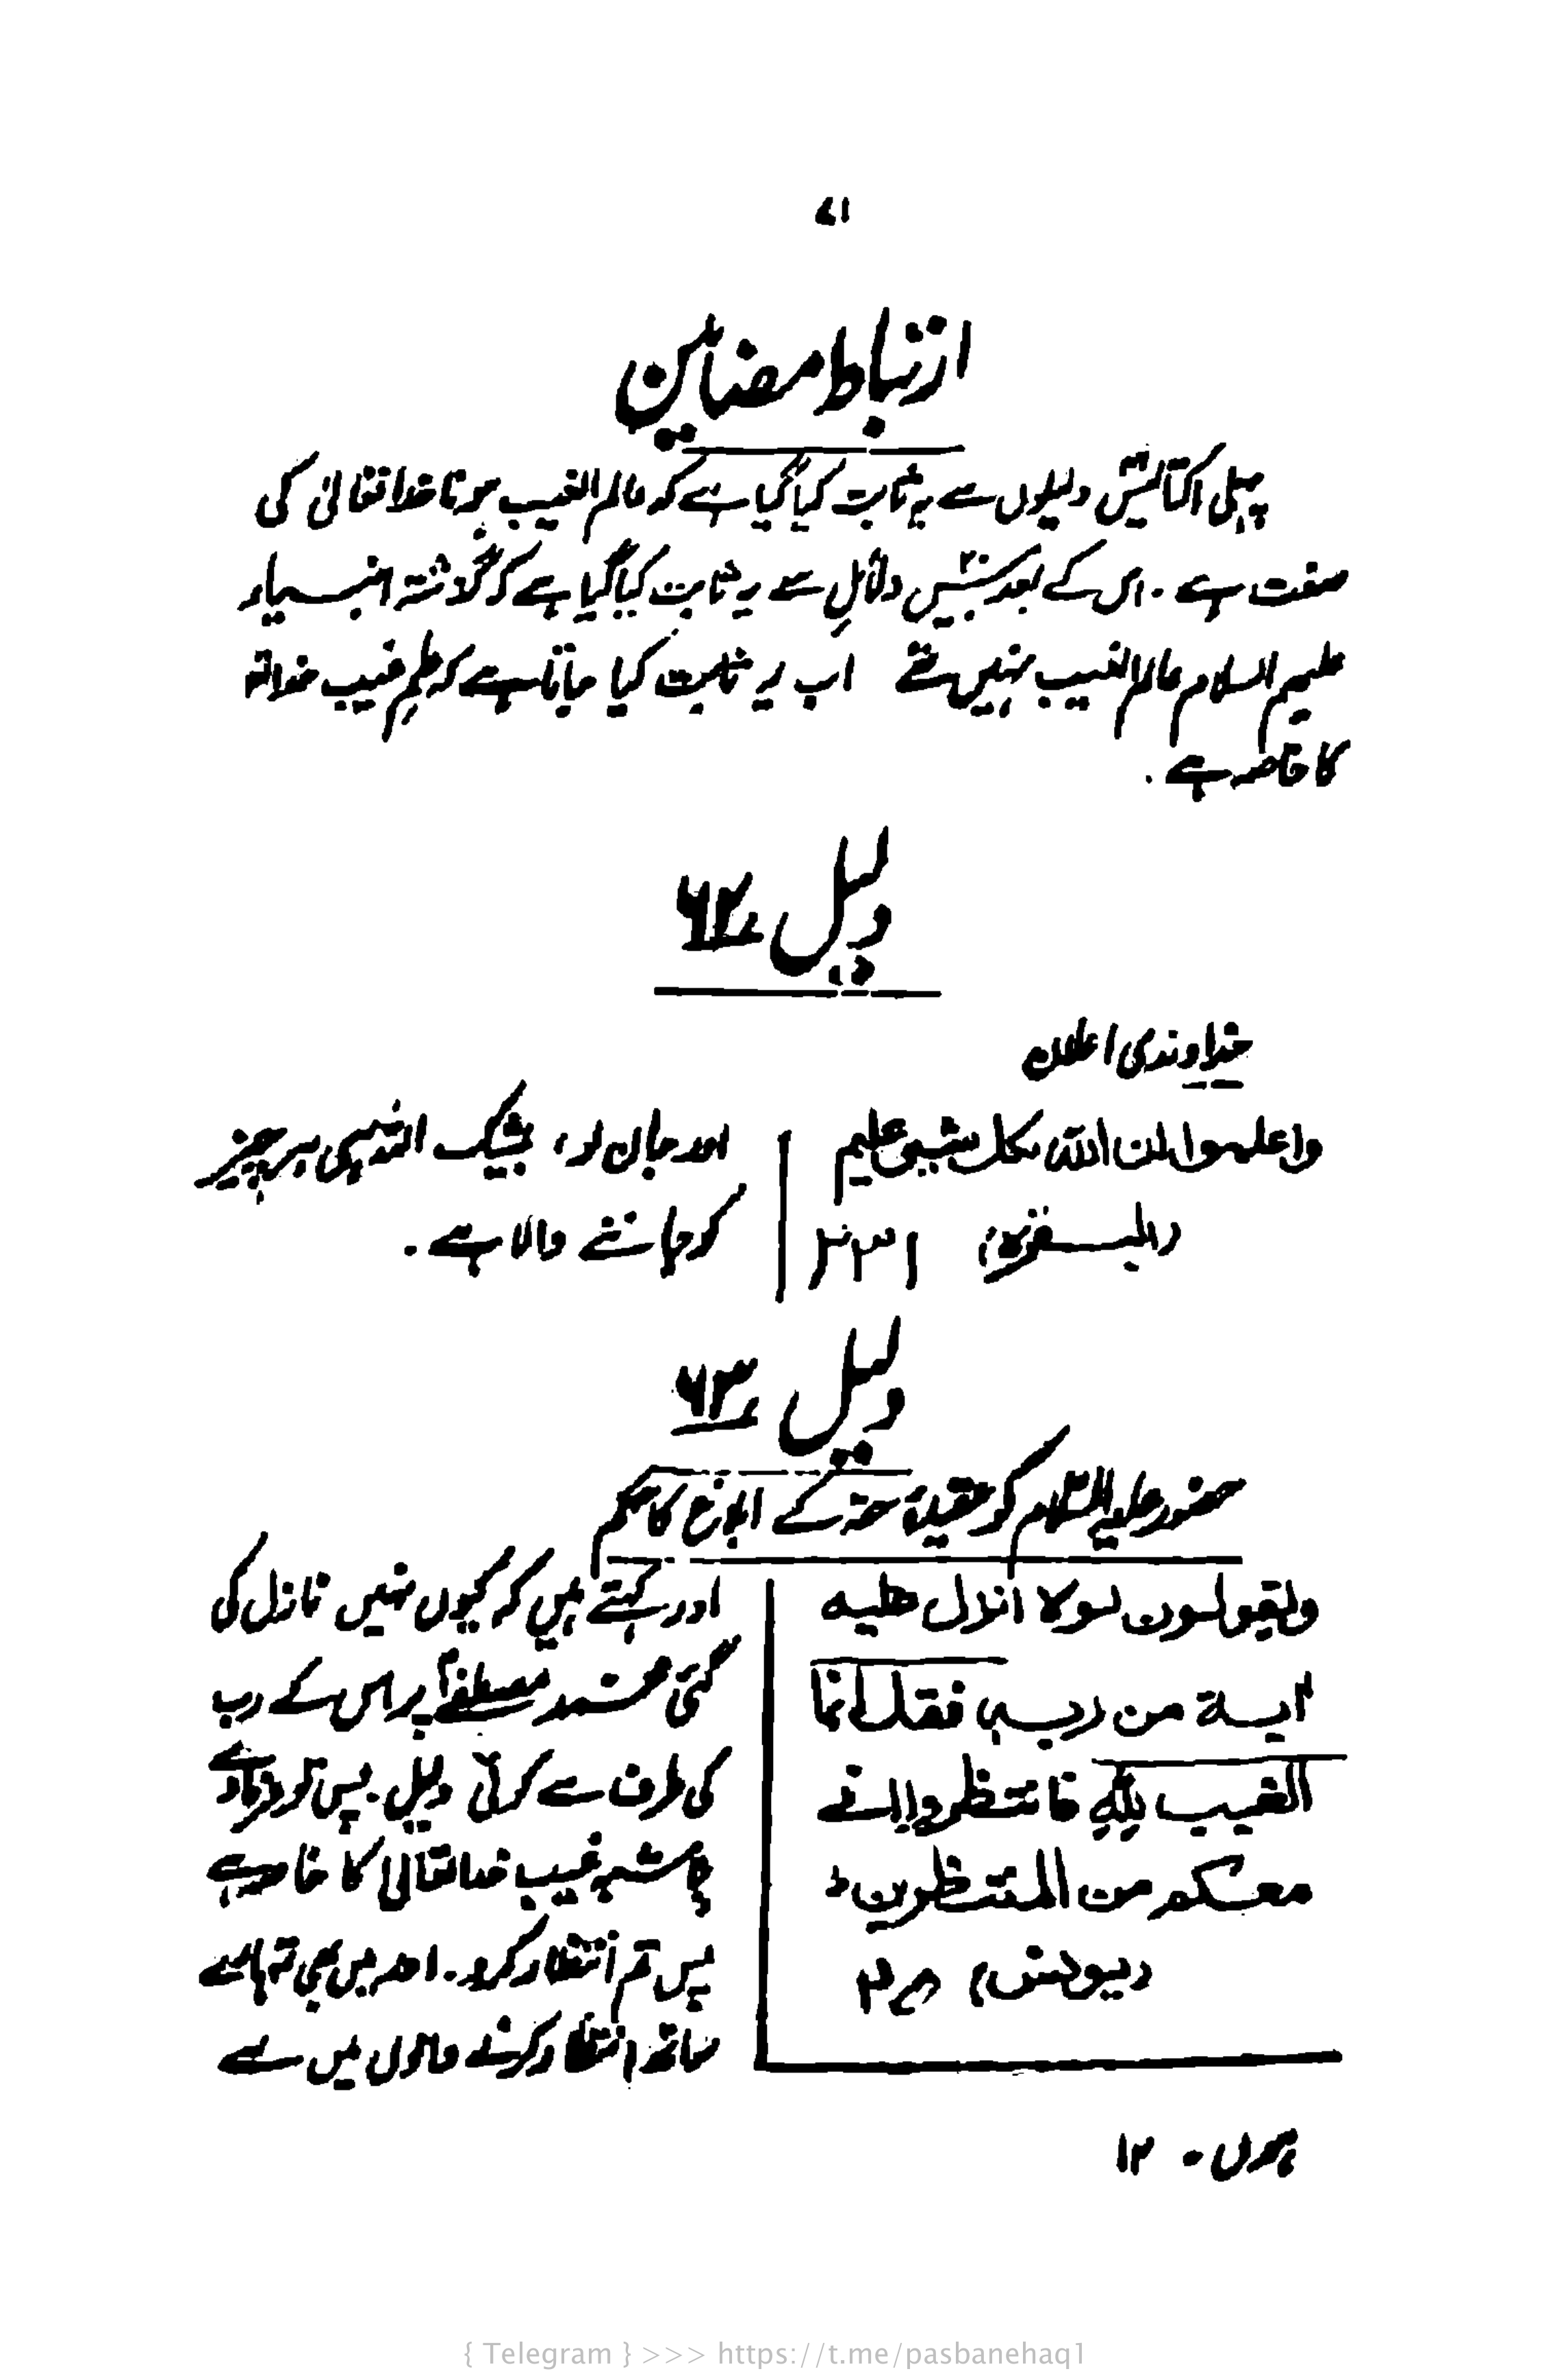 ارتباط مضامین
پہلی اکتالیس دلیلوں سے یہ ثابت کیا گیا ہے کہ عالم الغیب ہونا خدا تعالیٰ کی
صفت ہے ۔ اس کے بعد بیس دلائل سے یہ ثابت کیا گیا ہے کہ گذشتہ انبیاء
علیہم السلام عالم الغیب نہیں تھے اب یہ ثابت کیا جاتا ہے کہ علم غیب خدا تعالیٰ
کا خاصہ ہے ۔
دلیل ۶۲
خداوندی اعلان
واعلموا ان اللہ بکل شیئ علیم
(البقرۃ) ۲۳۱
اور جان لو، بیشک اللہ ہی ہر چیز
کو جاننے والا ہے ۔
دلیل ۶۳
حضور علیہ السلام کو عقیدۂ حقہ کے ابلاغ کا حکم
ویقولون لولا انزل علیہ
اٰیۃ من ربہ فقل انما
الغیب للہ فانتظروا انی
معکم من المنتظرین ط
(یونس)
اور کہتے ہیں کہ کیوں نہیں نازل کی
گئی محمد مصطفےٰؐ پر اس کے رب
کی طرف سے کوئی دلیل ۔ پس تو فرمادے
غیب خدا تعالیٰ کا خاصہ ہے
پس تم انتظار کرو ۔ اور میں بھی تمہارے
ساتھ انتظار کرنے والوں میں سے
ہوں ۔ ۱۲
{ Telegram } >>> https://t.me/pasbanehaq1